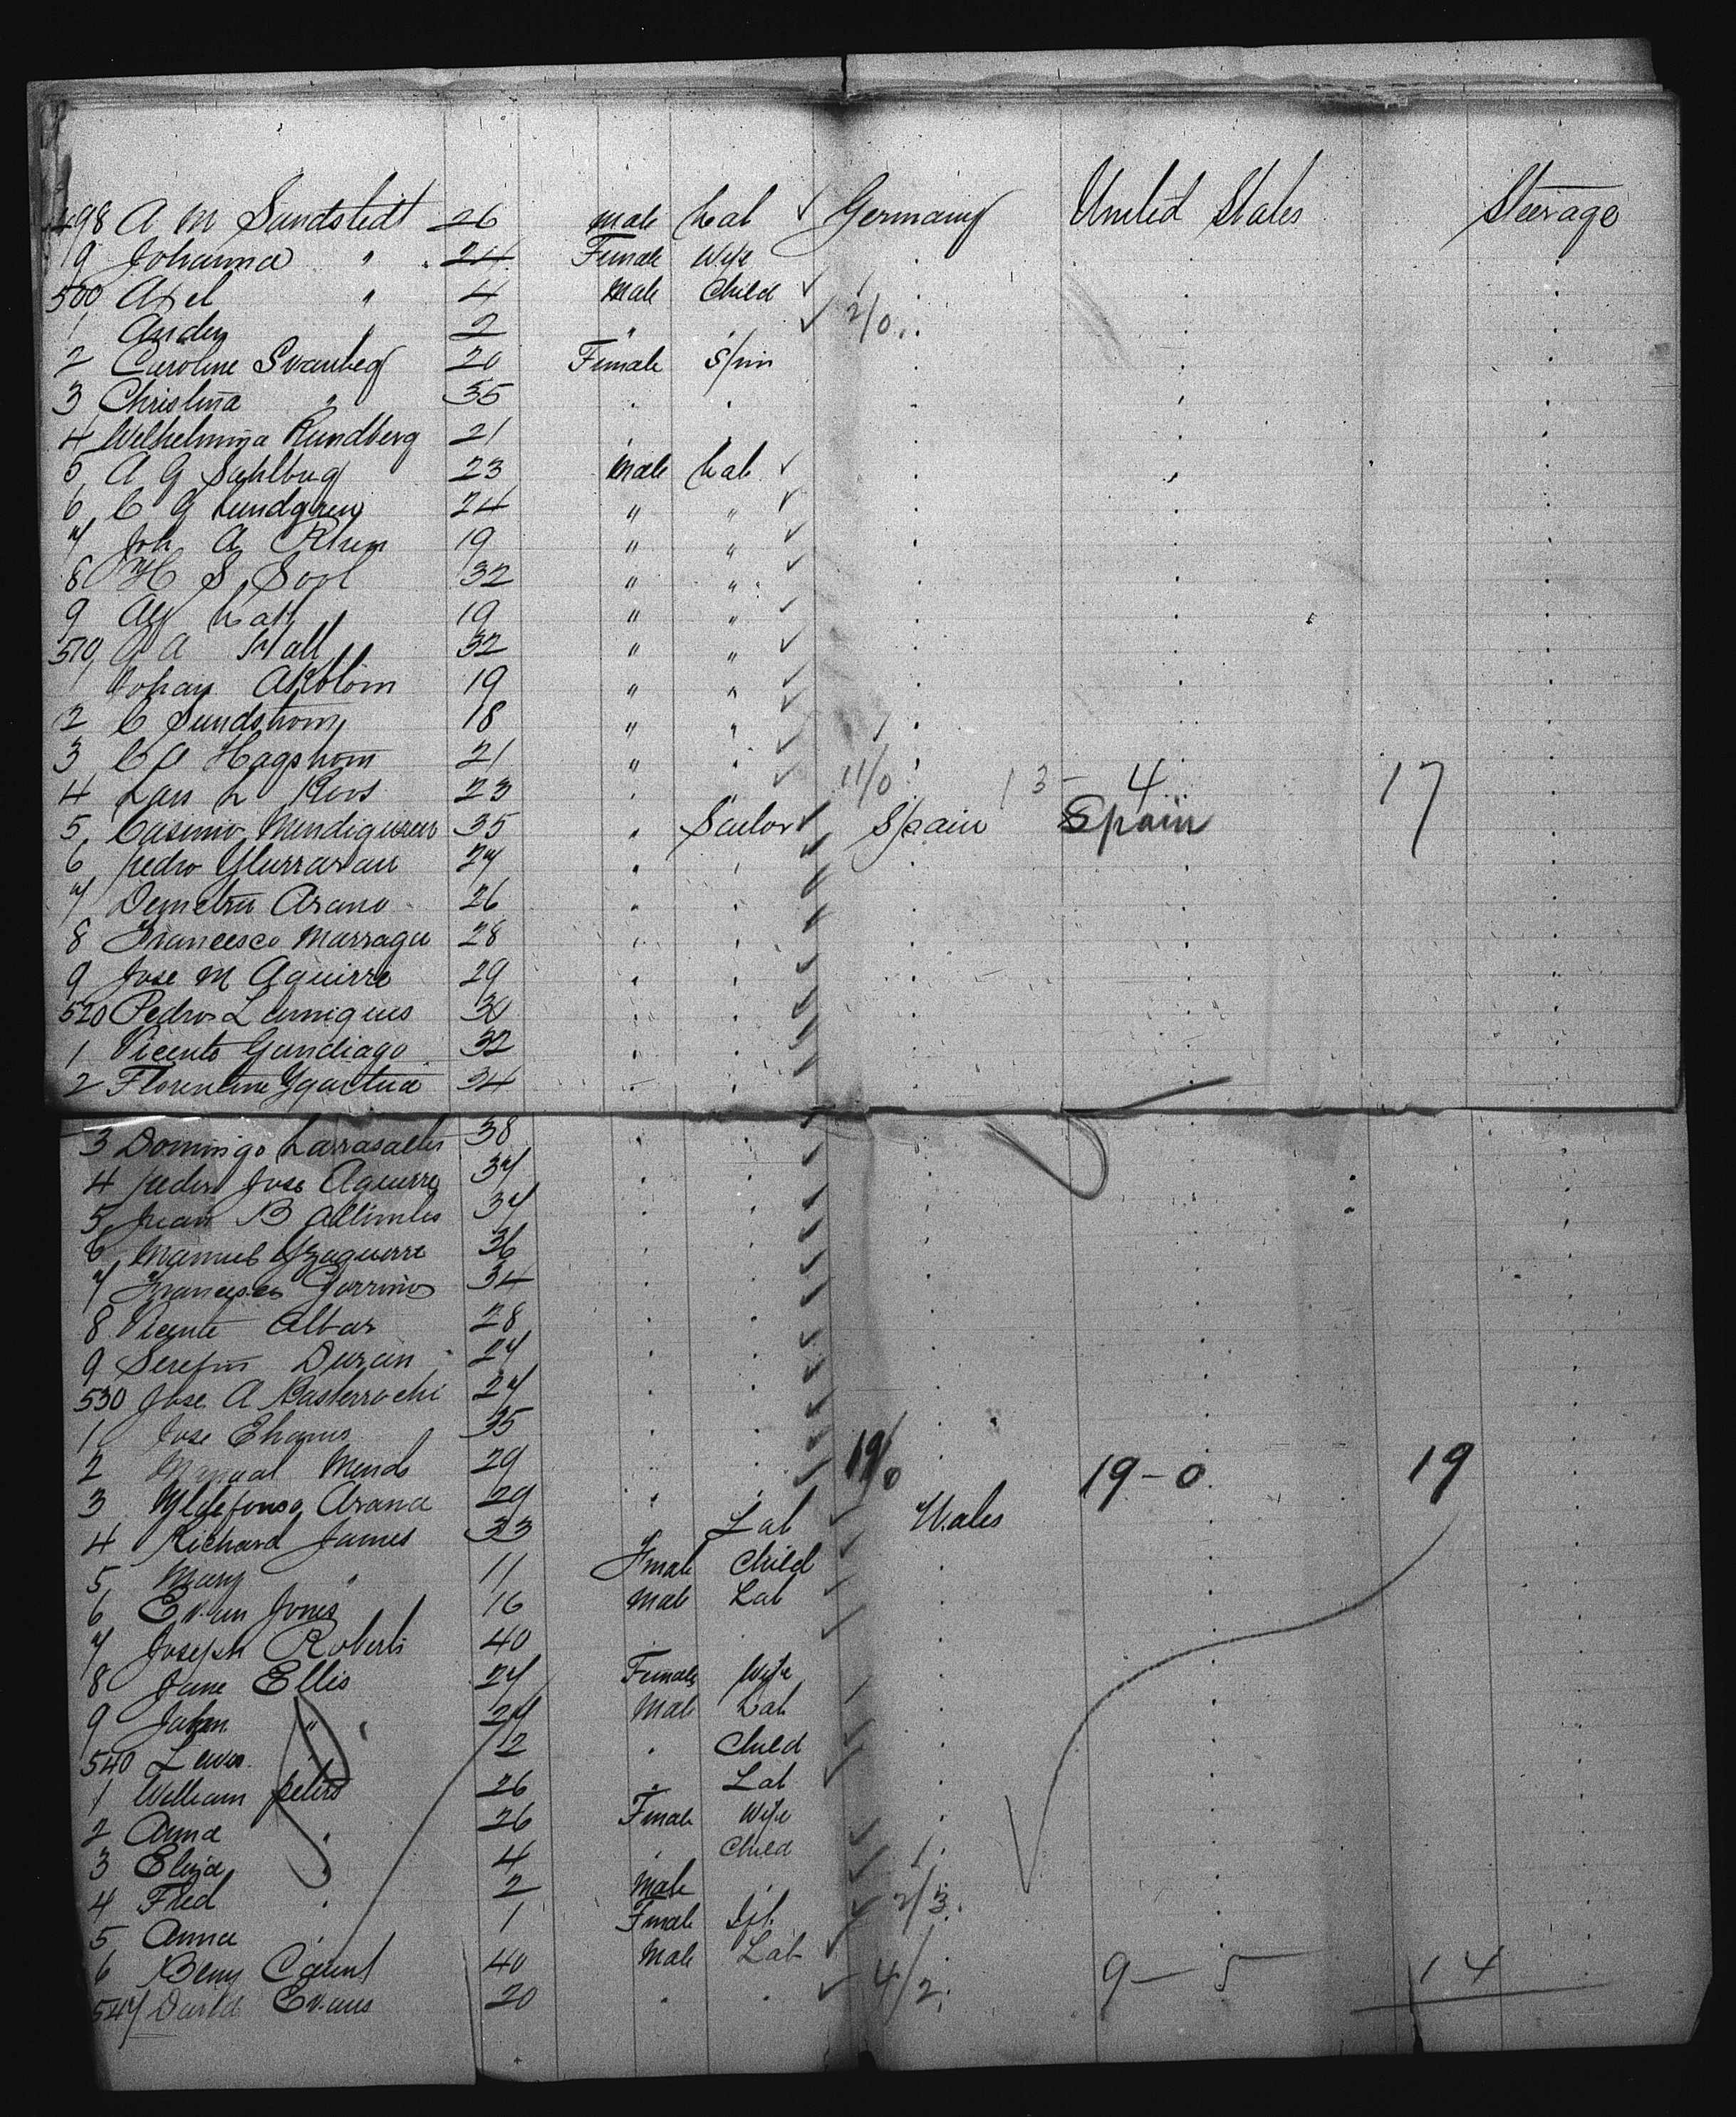 498 A M Sundstedt 26 Male Lab ✓ Germany United States Steerage
9 Johanna " 24 Female Wife
500 Axel " 4 Male Child ✓
1 Anders " 2 " ✓ 2/0
2 Caroline Svanberg 20 Female Spin
3 Christina " 35
4 Wilhelmina Rundberg 21
5 A G Sahlberg 23 Male Lab ✓
6 C G Lundgren 24 " " ✓
7 Joh A 19 " " ✓
8 S 32 " " ✓
9 19 " " ✓
510 A Hall 32 " " ✓
1 Johan 19 " " ✓
2 C Sundstrom 18 " " ✓
3 C A Hagstrom 21 " ✓
4 Lars L Roos 23 ✓ 11/0 13 - 4 17
5 Casimiro Mendiguren 35 Sailor ✓ Spain Spain
6 Pedro 27 ✓
7 Demetrio Arano 26 ✓
8 Francesco 28 ✓
9 Jose M Aguirre 29 ✓
520 Pedro 30 ✓
1 Vicente Gundiago 32 ✓
2 Florentine Ygartua 34 ✓
3 Domingo 38 ✓
4 Pedro Jose Aguirre 37 ✓
5 Juan B 37 ✓
6 Manuel Yzaguerre 36 ✓
7 Francisco 34 ✓
8 Vicente 28 ✓
9 Serefin Duran 27 ✓
530 Jose A Basterrachi 27 ✓
1 Jose 35 ✓
2 Manual 29 ✓
3 Yldefonso Arana 29 ✓ 19/0 19 - 0 19
4 Richard James 33 Lab ✓ Wales
5 Mary " 11 Fmale Child ✓
6 Evan Jones 16 Male Lab ✓
7 Joseph Roberts 40 ✓
8 Jane Ellis 27 Female Wife
9 John " 27 Male Lab
540 Lewis 2 Child ✓
1 William Peters 26 Lab ✓
2 Anna 26 Fmale Wife
3 Eliza 4 Child ✓
4 Fred 2 Male ✓
5 Anna 1 Fmale Inf ✓ 2/3
6 Benj 40 Male Lab ✓
547 David Evans 20 ✓ 4/2 9 - 5 14